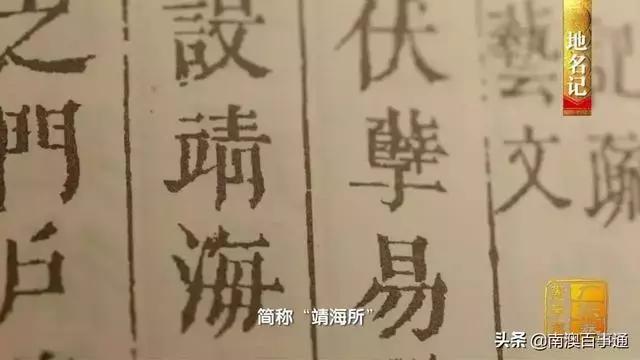 記疏
藝文
伏孽易
設靖海
之門戶
地名记
简称“靖海所”
头条 @南澳百事通